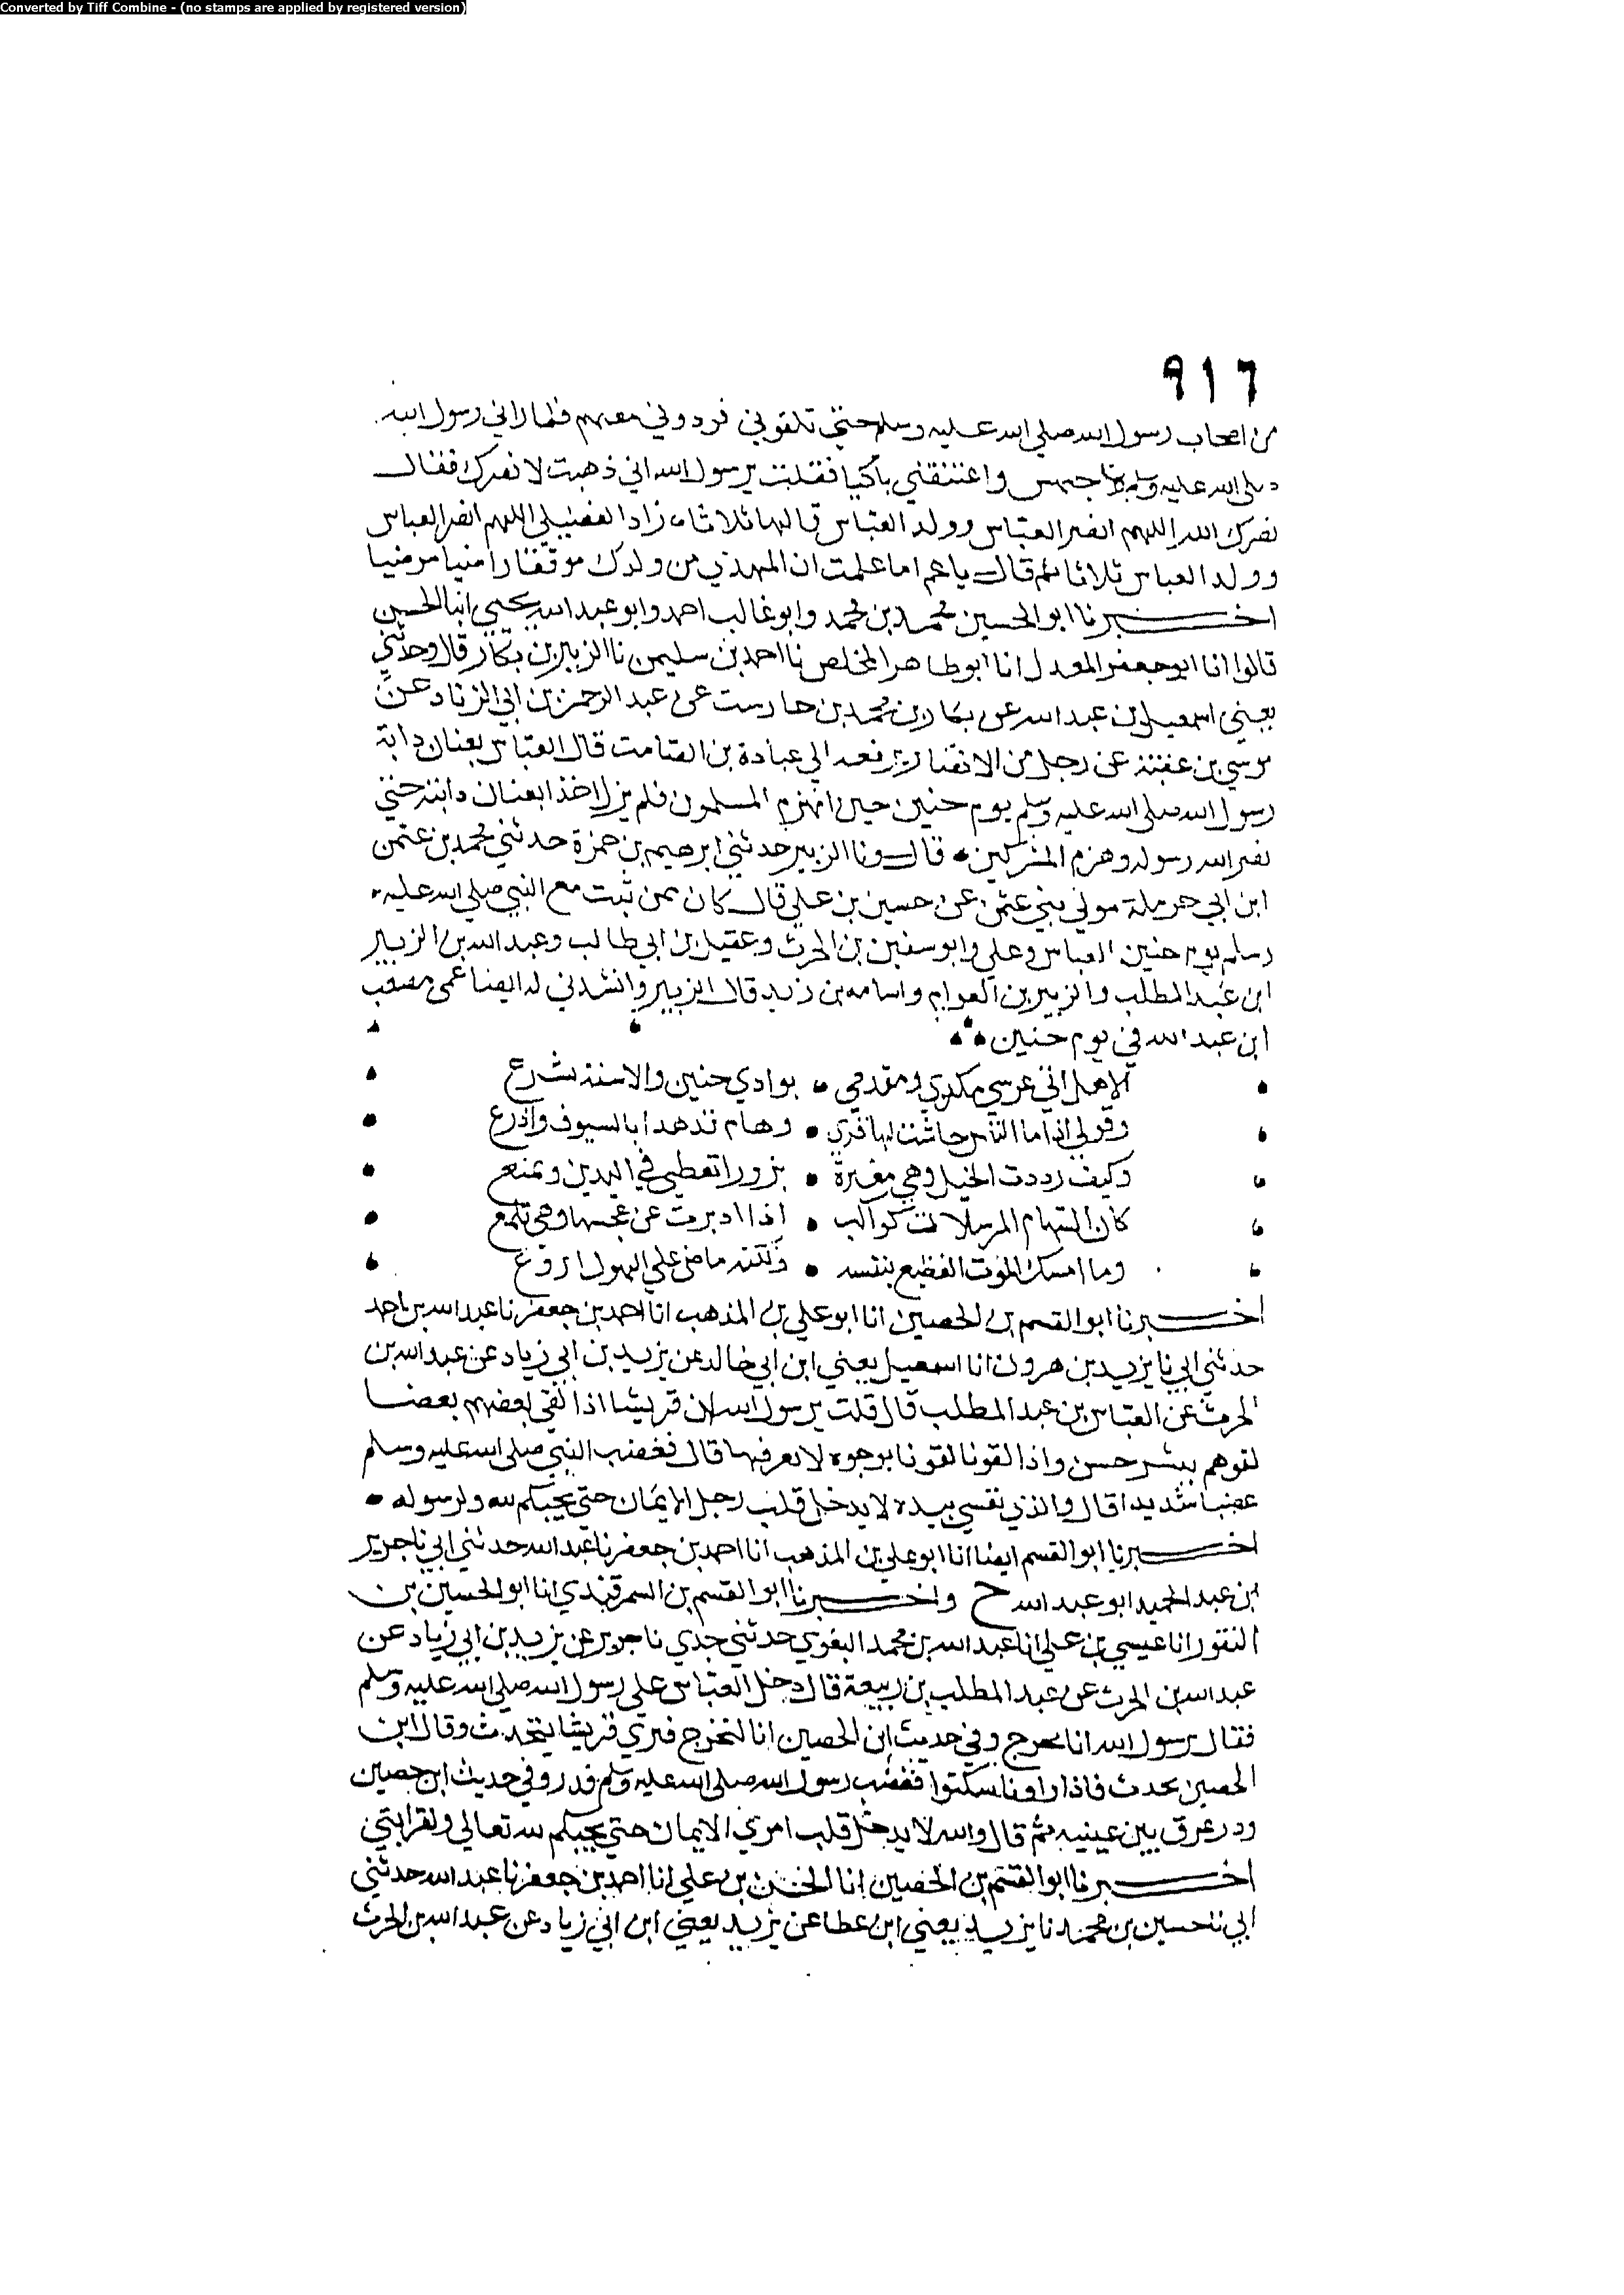 Converted by Tiff Combine - (no stamps are applied by registered version)
٩١٦
من اصحاب رسول الله صلى الله عليه وسلم حتى تلقوني فردوني معهم فلما راني رسول الله
صلى الله عليه وسلم واعتنقني باكيا فقلت يرسول الله اني ذهبت لانصرك فقال
نصرك الله اللهم انصر العباس وولد العباس قالها ثلاثا زاد الفضيلي اللهم انصر العباس
وولد العباس ثلاثا ثم قال ياعم اما علمت ان المهدي من ولدك موفقا راضيا مرضيا
اخبرنا ابو الحسين محمد بن محمد وابو غالب احمد وابو عبد الله يحيي ابنا الحسن
قالوا انا ابو جعفر المعدل انا ابو طاهر المخلص نا احمد بن سليمن نا الزبير بن بكار قال وحدثني
يعني اسمعيل بن عبد الله عن بكار بن محمد بن حارست عن عبد الرحمن بن ابي الزناد عن
موسي بن عقبة عن رجل من الانصار يرفعه الي عبادة بن الصامت قال العباس بعنان دابة
رسول الله صلى الله عليه وسلم يوم حنين حين انهزم المسلمون فلم يزل اخذا بعنان دابته حتى
نصر الله رسوله وهزم المشركين قال ونا الزبير حدثني ابرهيم بن حمزة حدثني محمد بن عثمن
ابن ابي حرملة مولي بني عثمن عن حسين بن علي قال كان ممن ثبت مع النبي صلى الله عليه
وسلم يوم حنين العباس وعلي وابو سفين بن الحرث وعقيل بن ابي طالب وعبد الله بن الزبير
ابن عبد المطلب والزبير بن العوام واسامه بن زيد قال الزبير وانشدني له ايضا عمي مصعب
ابن عبد الله في يوم حنين
الا هل اتى عرسي مكري ومقدمي بوادي حنين والاسنة تشرع
وقولي اذا ما النفس جاشت لها قري وهام تدهدا بالسيوف وادرع
وكيف رددت الخيل وهي مغيرة بزورا تعطي في اليدين وتمنع
كان السهام المرسلات كواكب اذا ادبرت عن عجسها وهي تلمع
وما امسك الموت الفظيع بنفسه ولكنه ماض علي الهول اروع
اخبرنا ابو القسم بن الحصين انا ابو علي بن المذهب انا احمد بن جعفر نا عبد الله بن احمد
حدثني ابي نا يزيد بن هرون انا اسمعيل يعني ابن ابي خالد عن يزيد بن ابي زياد عن عبد الله بن
الحرث عن العباس بن عبد المطلب قال قلت يرسول الله ان قريشا اذا لقي بعضهم بعضا
لقوهم ببشر حسن واذا لقونا لقونا بوجوه لا نعرفها قال فغضب النبي صلى الله عليه وسلم
غضبا شديدا قال والذي نفسي بيده لا يدخل قلب رجل الايمان حتى يحبكم لله ولرسوله
اخبرنا ابو القسم ايضا انا ابو علي بن المذهب انا احمد بن جعفر نا عبد الله حدثني ابي نا جرير
ابن عبد الحميد ابو عبد الله ح واخبرنا ابو القسم بن السمرقندي انا ابو الحسين بن
النقور انا عيسي بن علي انا عبد الله بن محمد البغوي حدثني جدي نا جرير عن يزيد بن ابي زياد عن
عبد الله بن الحرث عن عبد المطلب بن ربيعة قال دخل العباس على رسول الله صلى الله عليه وسلم
فقال يرسول الله انا نخرج وفي حديث ابن الحصين انا لنخرج فنري قريشا يتحدث وقال ابن
الحصين تحدث فاذا راونا سكتوا فغضب رسول الله صلى الله عليه وسلم فدر وفي حديث ابن حصين
ودر عرق بين عينيه ثم قال والله لا يدخل قلب امري الايمان حتى يحبكم لله تعالي ولقرابتي
اخبرنا ابو القسم بن الحصين انا الحسن بن علي انا احمد بن جعفر نا عبد الله حدثني
ابي نا حسين بن محمد نا يزيد يعني ابن عطا عن يزيد يعني ابن ابي زياد عن عبد الله بن الحرث